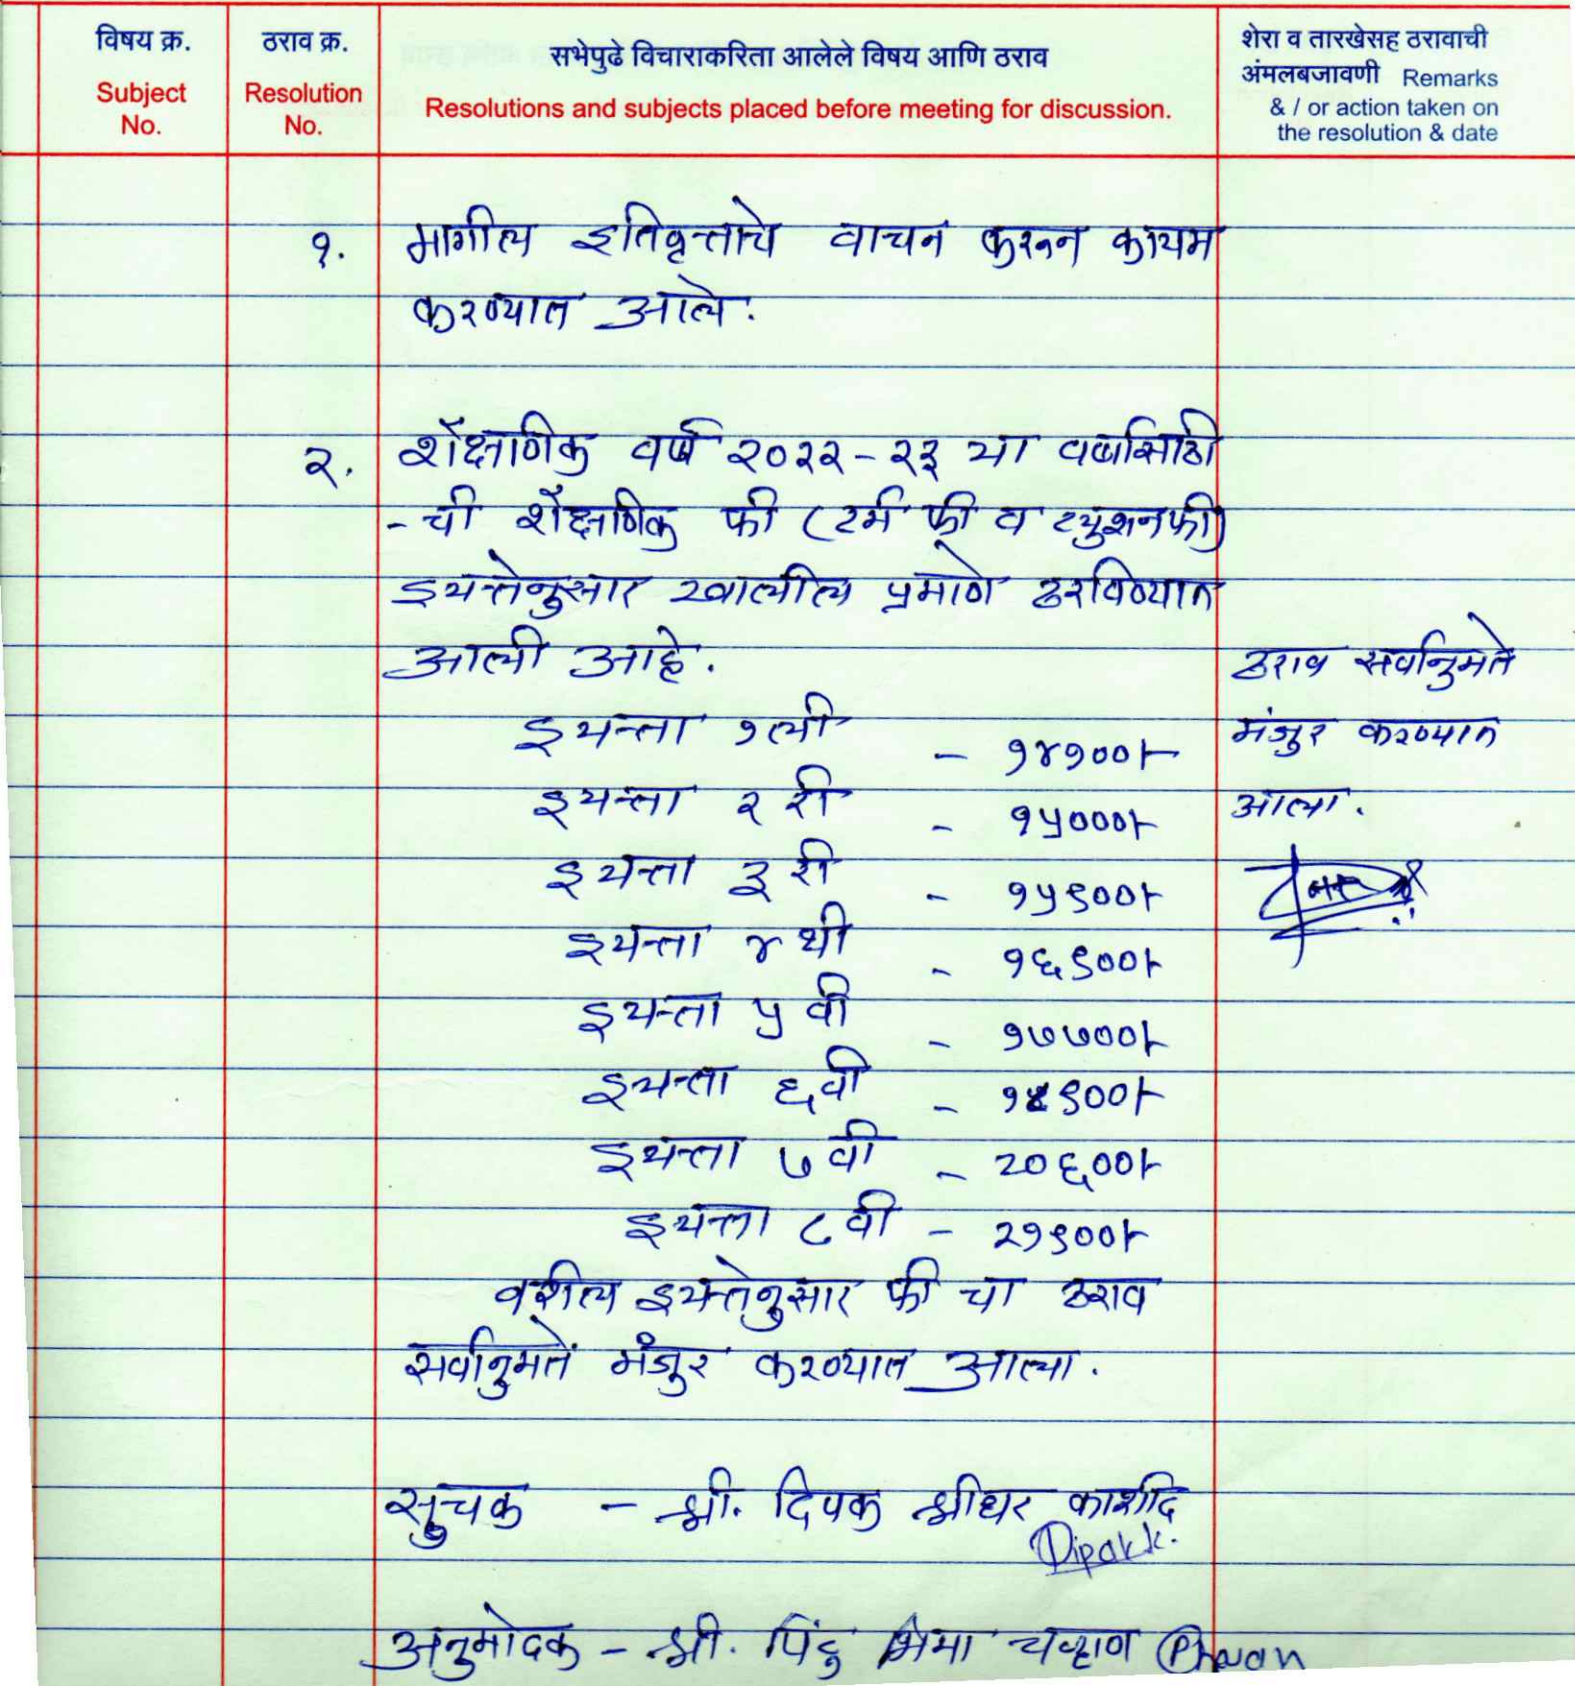 विषय क्र.
Subject
No.
ठराव क्र.
Resolution
No.
सभेपुढे विचाराकरिता आलेले विषय आणि ठराव
Resolutions and subjects placed before meeting for discussion.
शेरा व तारखेसह ठरावाची
अंमलबजावणी Remarks
& / or action taken on
the resolution & date
१. मागील इतिवृत्ताचे वाचन करुन कायम
करण्यात आले.
२. शैक्षणिक वर्ष २०२२-२३ या वर्षासाठी
-ची शैक्षणिक फी (टर्म फी व ट्युशनफी)
इयत्तेनुसार खालील प्रमाणे ठरविण्यात
आली आहे.
इयत्ता १ली - १४१००/-
इयत्ता २ री - १५०००/-
इयत्ता ३ री - १५९००/-
इयत्ता ४ थी - १६९००/-
इयत्ता ५ वी - १७७००/-
इयत्ता ६वी -
इयत्ता ७ वी - २०६००/-
इयत्ता ८वी - २१९००/-
वरील इयत्तेनुसार फी चा ठराव
सर्वानुमते मंजुर करण्यात आला.
सुचक - श्री. दिपक श्रीधर काशीद
Dipak K.
अनुमोदक - श्री. पिंटु भिमा चव्हाण
ठराव सर्वानुमते
मंजुर करण्यात
आला.